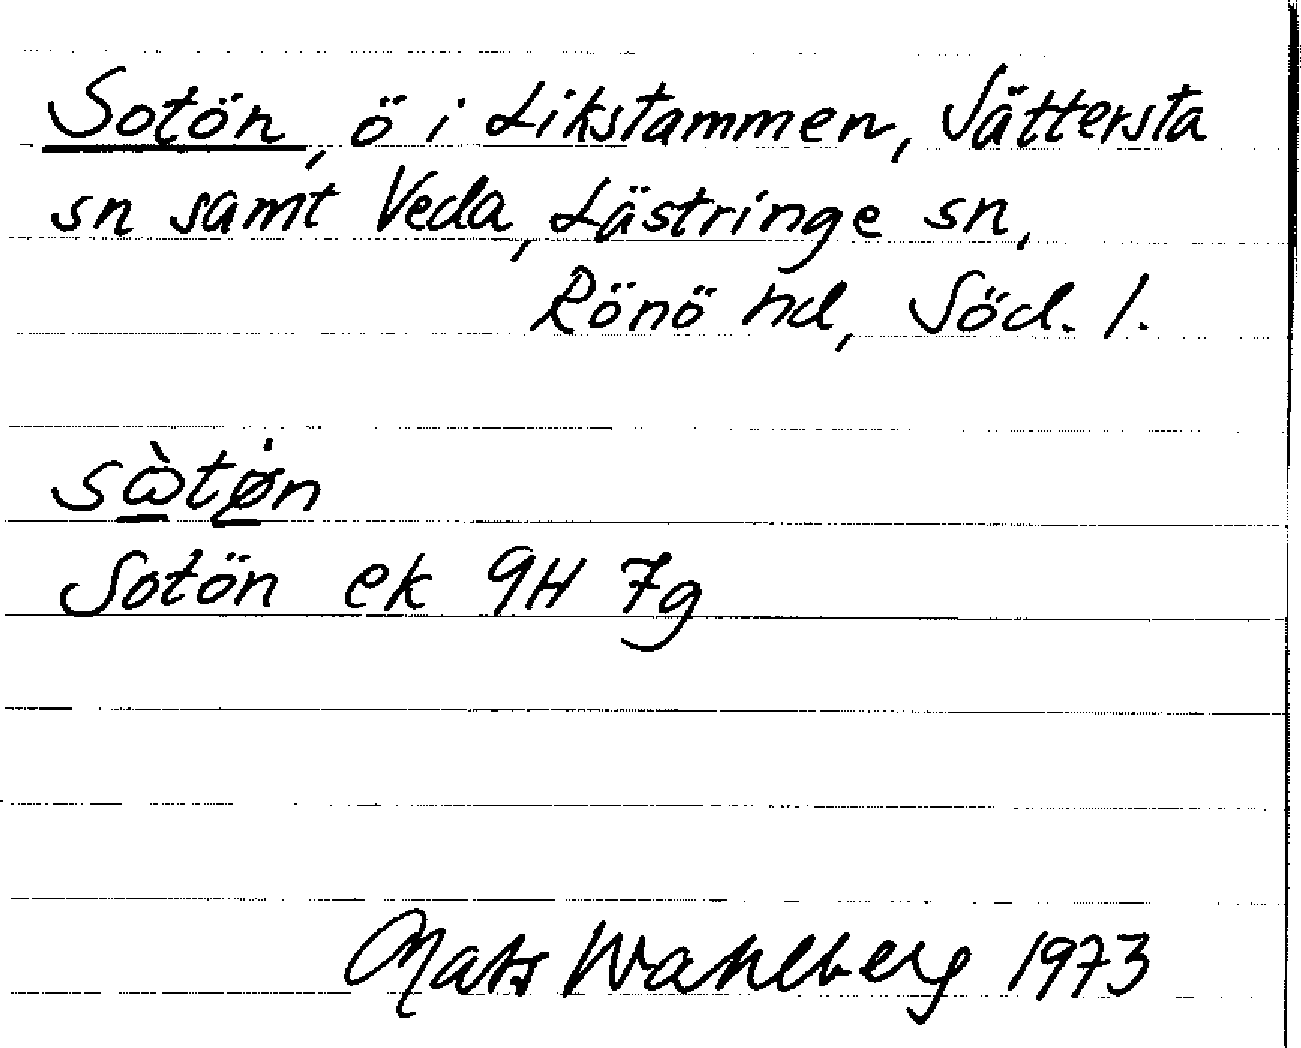 Sotön, ö i Likstammen, Sättersta
sn samt Veda, Lästringe sn,
Rönö hd, Söd. l.
sὼtø̇n
Sotön ek 9H 7g
Mats Wahlberg 1973